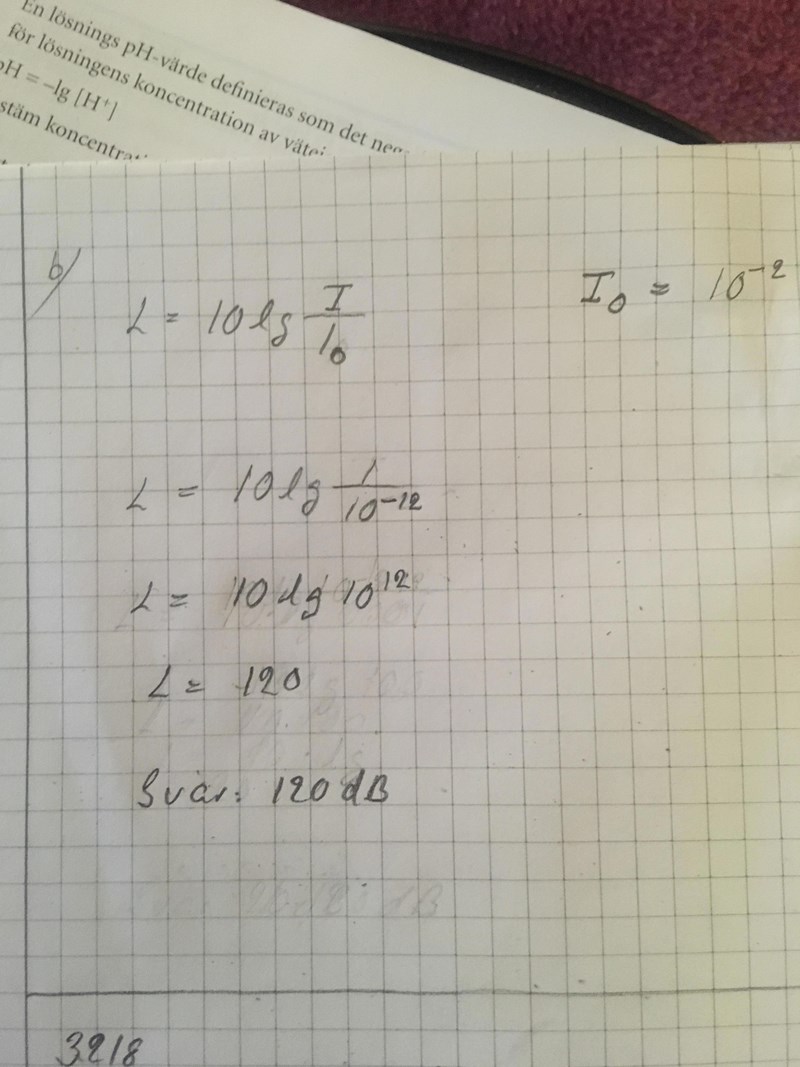 En lösnings pH-värde definieras som det neg
för lösningens koncentration av vätej
pH = –lg [H⁺]
stäm koncentrati
b)
L = 10 lg I/I₀
I₀ = 10⁻²
L = 10 lg 1/10⁻¹²
L = 10 lg 10¹²
L = 120
Svar: 120 dB
3218